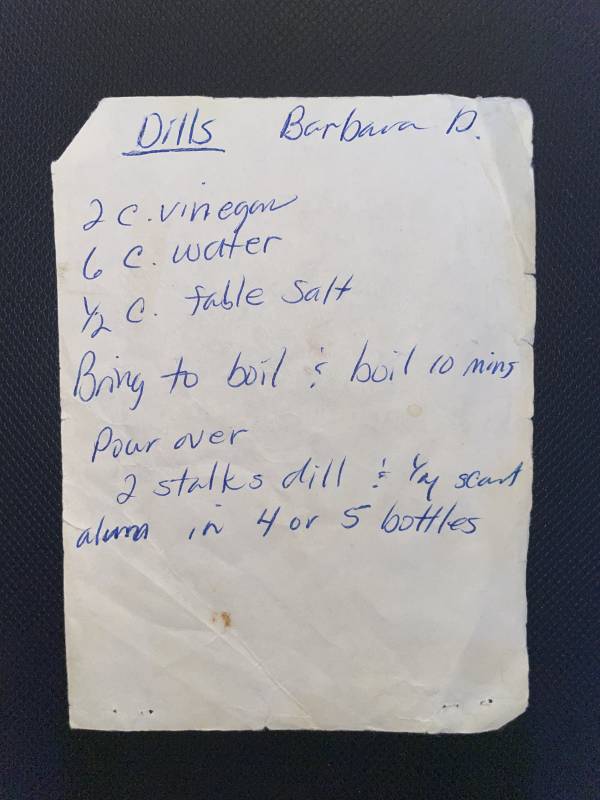 Dills Barbara D.
2 C. vinegar
6 C. water
1/2 C. table salt
Bring to boil & boil 10 mins
Pour over
2 stalks dill & 1/4 scant
alum in 4 or 5 bottles